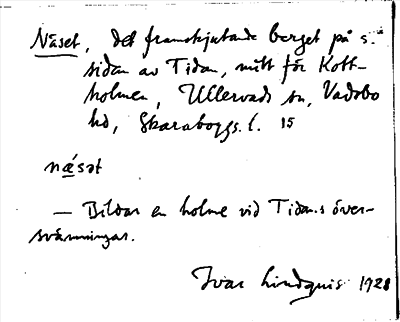 Näset, det framskjutande berget på s.
sidan av Tidan, mitt för Kott-
holmen, Ullervads sn, Vadsbo
hd, Skaraborgs l. 15
näsət
— Bildar en holme vid Tidans över-
svämningar.
Ivar Lindquist 1928